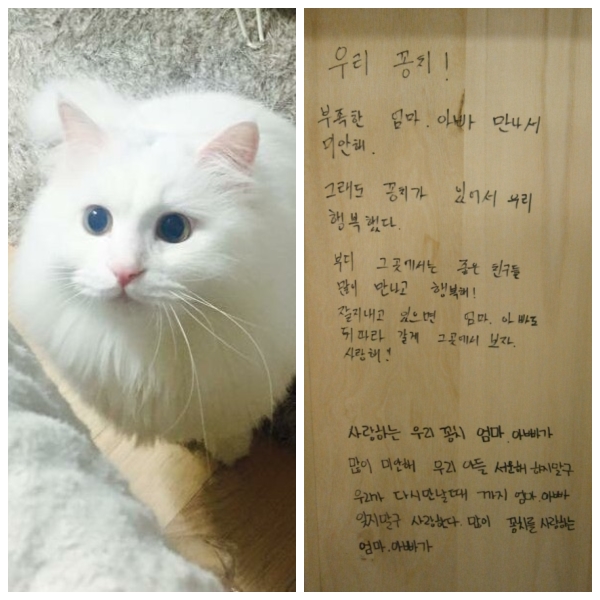 우리 꽁치!
부족한 엄마.아빠 만나서
미안해.
그래도 꽁치가 있어서 우리
행복했다.
부디 그곳에서는 좋은 친구들
많이 만나고 행복해!
잘지내고 있으면 엄마.아빠도
뒤따라 갈게 그곳에서 보자.
사랑해!
사랑하는 우리 꽁치 엄마.아빠가
많이 미안해 우리 아들 서운해 하지말구
우리가 다시만날때 까지 엄마.아빠
잊지말구 사랑한다. 많이 꽁치를 사랑하는
엄마.아빠가